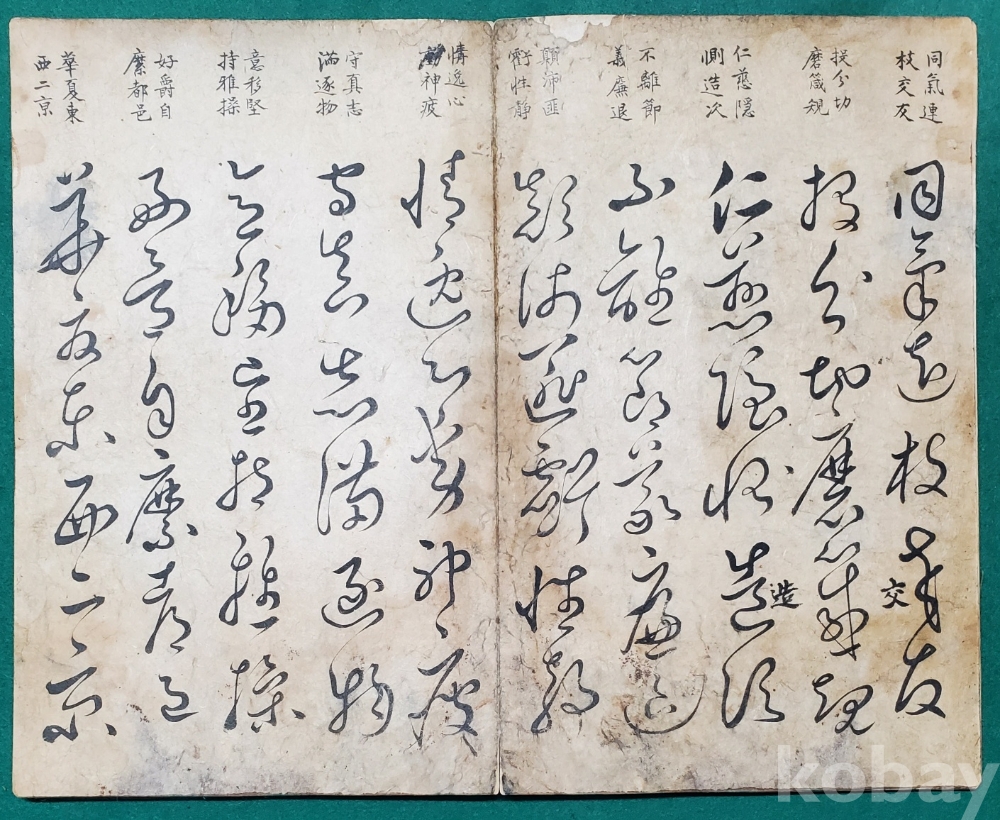 同氣連
枝交友
投分切
磨箴規
仁慈隱
惻造次
不離節
義廉退
顛沛匪
虧性静
情逸心
動神疲
守真志
滿逐物
意移堅
持雅操
好爵自
縻都邑
華夏東
西二京
同氣連枝交友
交
投分切磨箴規
仁慈隱惻造次
造
不離節義廉退
顛沛匪虧性静
情逸心動神疲
守真志滿逐物
意移堅持雅操
好爵自縻都邑
華夏東西二京
kobay